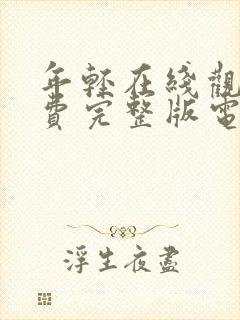 年輕在綫觀
費完整版電
浮生夜盡